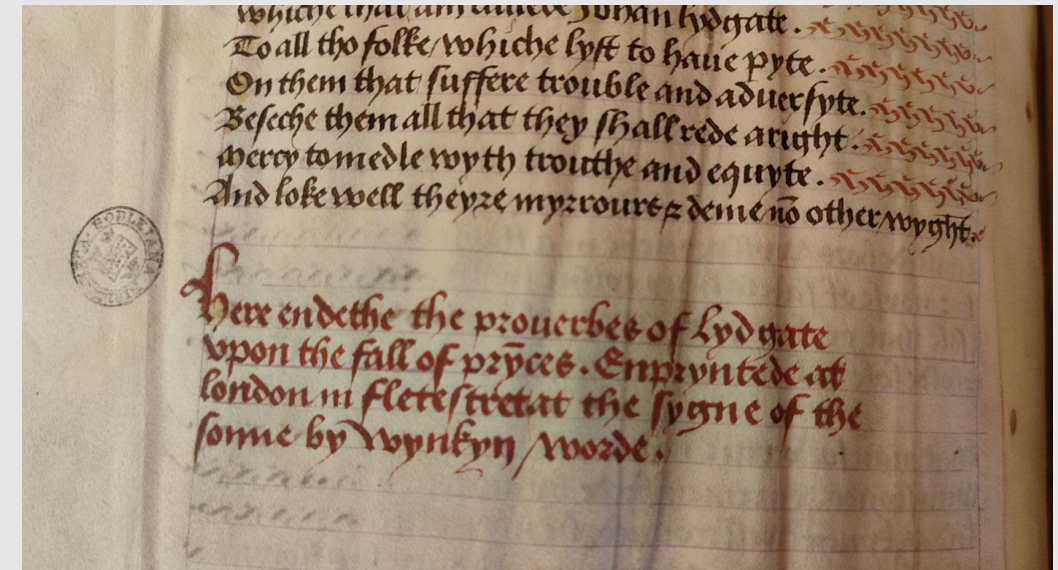 whiche that am called Johan lydgate.
To all tho folke / whiche lyst to haue pyte.
On them that suffere trouble and aduersyte.
Beseche them all that they shall rede aright.
Mercy to medle wyth trouthe and equyte.
And loke well theyre myrrours & deme nō other wyght.
BODLEIANA
Here endethe the prouerbes of lydgate
vpon the fall of prȳces. Enpryntede at
london in fletestret at the sygne of the
sonne by wynkyn / worde.